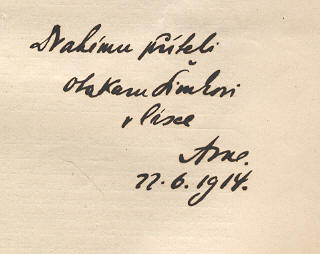 Drahému příteli
Otakaru Šimkovi
v lásce
Arne.
22.6.1914.